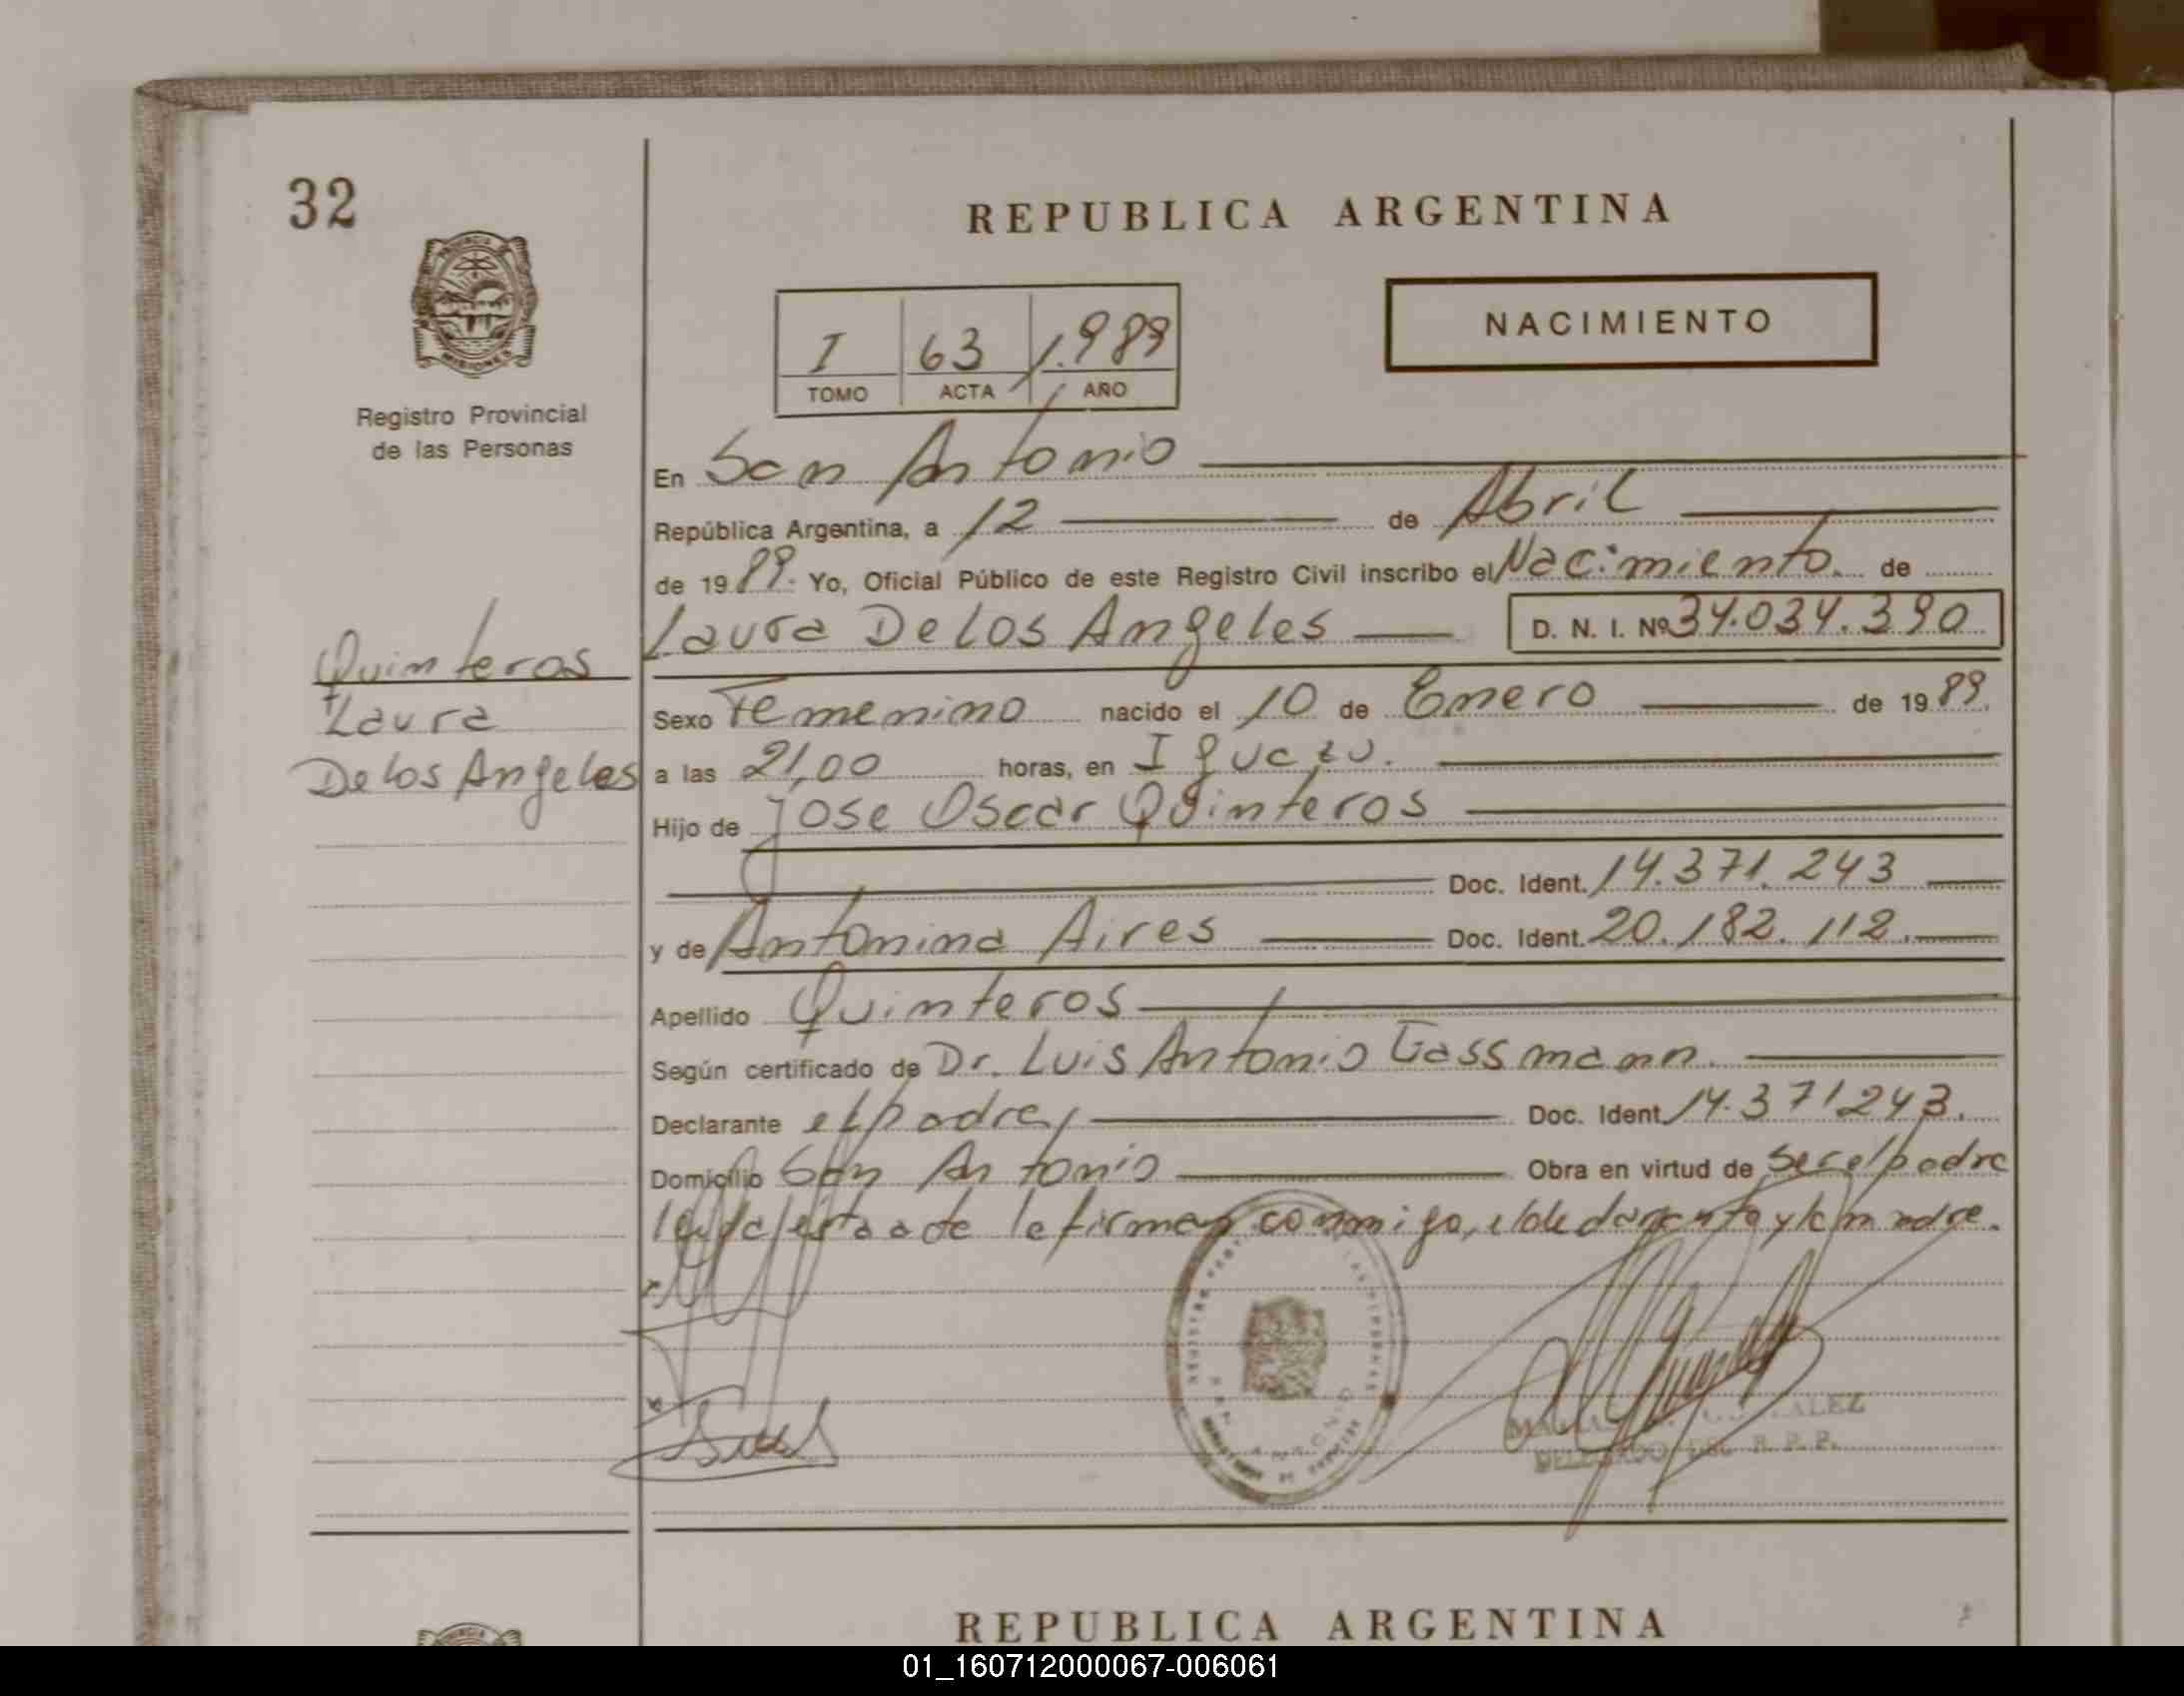 32
REPUBLICA ARGENTINA
NACIMIENTO
I 63 1.989
TOMO ACTA AÑO
Registro Provincial
de las Personas
En San Antonio
República Argentina, a 12 de Abril
de 1989. Yo, Oficial Público de este Registro Civil inscribo el Nacimiento. de
Laura De Los Angeles D. N. I. Nº 34.034.390
Quinteros
Laura
De los Angeles
Sexo Femenino nacido el 10 de Enero de 1989.
a las 21,00 horas, en Iguazu.
Hijo de Jose Oscar Quinteros
Doc. Ident. 14.371.243
y de Antonina Aires Doc. Ident. 20.182.112.
Apellido Quinteros
Según certificado de Dr. Luis Antonio Gassmann.
Declarante el padre, Doc. Ident. 14.371243.
Domicilio San Antonio Obra en virtud de ser el padre
leyda esta acta la firman conmigo, el declarante y la madre.
DELEGADO DEL R. P. P.
REPUBLICA ARGENTINA
01_160712000067-006061